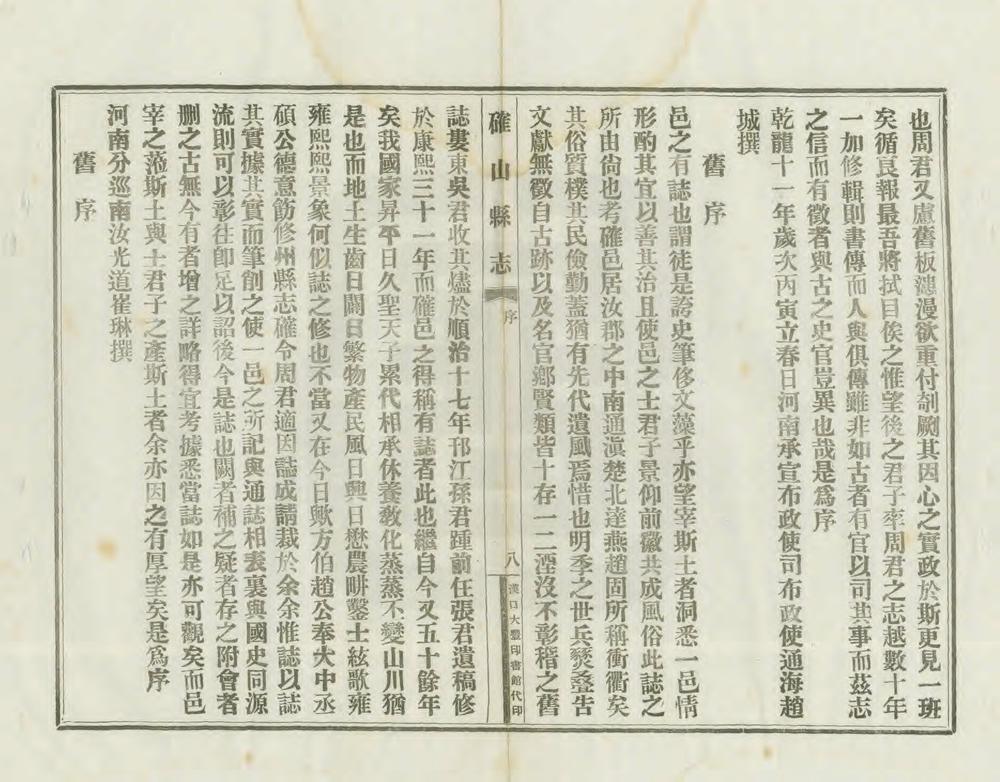 也周君又慮舊板漶漫欲重付剞劂其因心之實政於斯更見一班
矣循良報最吾將拭目俟之惟望後之君子率周君之志越數十年
一加修輯則書傳而人與俱傳雖非如古者有官以司其事而茲志
之信而有徵者與古之史官豈異也哉是爲序
乾隆十一年歲次丙寅立春日河南承宣布政使司布政使通海趙
城撰
舊序
邑之有誌也謂徒是誇史筆侈文藻乎亦望宰斯土者洞悉一邑情
形酌其宜以善其治且使邑之士君子景仰前徽共成風俗此誌之
所由尙也考確邑居汝郡之中南通滇楚北達燕趙固所稱衝衢矣
其俗質樸其民儉勤蓋猶有先代遺風焉惜也明季之世兵燹疊告
文獻無徵自古跡以及名官鄉賢類皆十存一二湮沒不彰稽之舊
確山縣志
序
八
漢口大豐印書館代印
誌婁東吳君收其燼於順治十七年邗江孫君踵前任張君遺稿修
於康熙三十一年而確邑之得稱有誌者此也繼自今又五十餘年
矣我國家昇平日久聖天子累代相承休養敎化蒸蒸丕變山川猶
是也而地土生齒日闢日繁物產民風日興日懋農畊鑿士絃歌雍
雍熙熙景象何似誌之修也不當又在今日歟方伯趙公奉大中丞
碩公德意飭修州縣志確令周君適因誌成請裁於余余惟誌以誌
其實據其實而筆削之使一邑之所記與通誌相表裏與國史同源
流則可以彰往卽足以詔後今是誌也闕者補之疑者存之附會者
刪之古無今有者增之詳略得宜考據悉當誌如是亦可觀矣而邑
宰之蒞斯土與士君子之產斯土者余亦因之有厚望矣是爲序
河南分巡南汝光道崔琳撰
舊序